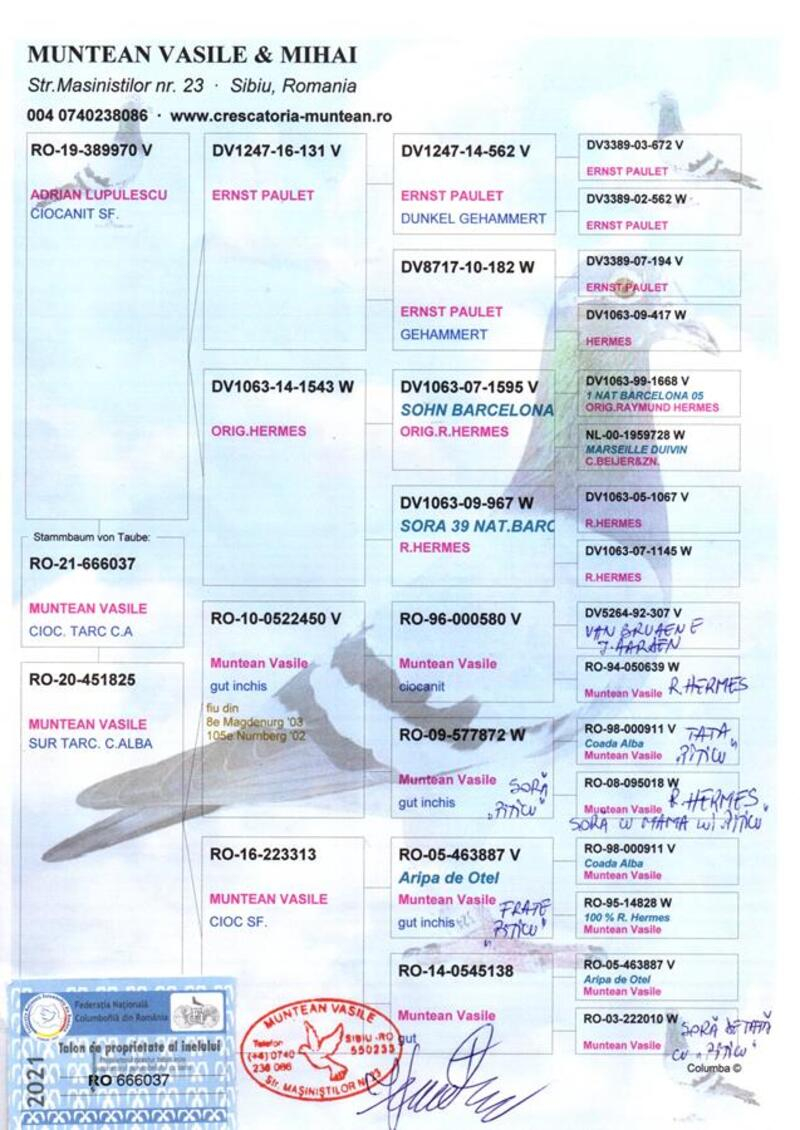 MUNTEAN VASILE & MIHAI
Str.Masinistilor nr. 23 · Sibiu, Romania
004 0740238086 · www.crescatoria-muntean.ro
RO-19-389970 V
ADRIAN LUPULESCU
CIOCANIT SF.
Stammbaum von Taube:
RO-21-666037
MUNTEAN VASILE
CIOC. TARC C.A
RO-20-451825
MUNTEAN VASILE
SUR TARC. C.ALBA
DV1247-16-131 V
ERNST PAULET
DV1063-14-1543 W
ORIG.HERMES
RO-10-0522450 V
Muntean Vasile
gut inchis
fiu din
8e Magdenurg '03
105e Nurnberg '02
RO-16-223313
MUNTEAN VASILE
CIOC SF.
DV1247-14-562 V
ERNST PAULET
DUNKEL GEHAMMERT
DV8717-10-182 W
ERNST PAULET
GEHAMMERT
DV1063-07-1595 V
SOHN BARCELONA
ORIG.R.HERMES
DV1063-09-967 W
SORA 39 NAT.BARC
R.HERMES
RO-96-000580 V
Muntean Vasile
ciocanit
RO-09-577872 W
Muntean Vasile
gut inchis
SORĂ
"PITICU"
RO-05-463887 V
Aripa de Otel
Muntean Vasile
gut inchis
FRATE
"PITICU"
RO-14-0545138
Muntean Vasile
gut
DV3389-03-672 V
ERNST PAULET
DV3389-02-562 W
ERNST PAULET
DV3389-07-194 V
ERNST PAULET
DV1063-09-417 W
HERMES
DV1063-99-1668 V
1 NAT BARCELONA 05
ORIG.RAYMUND HERMES
NL-00-1959728 W
MARSEILLE DUIVIN
C.BEIJER&ZN.
DV1063-05-1067 V
R.HERMES
DV1063-07-1145 W
R.HERMES
DV5264-92-307 V
VAN BRUAENE
J. AARDEN
RO-94-050639 W
Muntean Vasile R.HERMES
RO-98-000911 V
Coada Alba
Muntean Vasile
TATA
"PITICU"
RO-08-095018 W
Muntean Vasile R.HERMES
SORĂ CU MAMA LUI "PITICU"
RO-98-000911 V
Coada Alba
Muntean Vasile
RO-95-14828 W
100 % R. Hermes
Muntean Vasile
RO-05-463887 V
Aripa de Otel
Muntean Vasile
RO-03-222010 W
Muntean Vasile
SORĂ DE TATĂ
CU "PITICU"
Columba ©
Federația Națională
Columbofilă din România
Talon de proprietate al inelului
2021
RO 666037
MUNTEAN VASILE
Telefon
(+4) 0740
238 086
SIBIU -RO
550233
Str. MAȘINIȘTILOR Nr 23